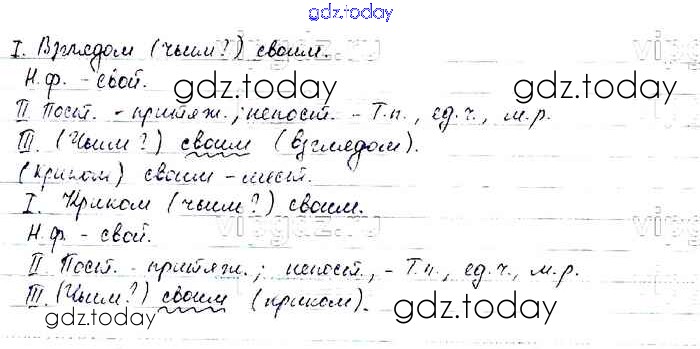 gdz.today
I. Взглядом (чьим?) своим.
Н.ф. - свой.
gdz.today gdz.today
II Пост. - притяж.; непост. - Т.п., ед.ч., м.р.
III. (Чьим?) своим (взглядом).
(Криком) своим - мест.
I. Криком (чьим?) своим.
Н.ф. - свой.
II Пост. - притяж.; непост. - Т.п., ед.ч., м.р.
III. (Чьим?) своим (криком).
gdz.today gdz.today